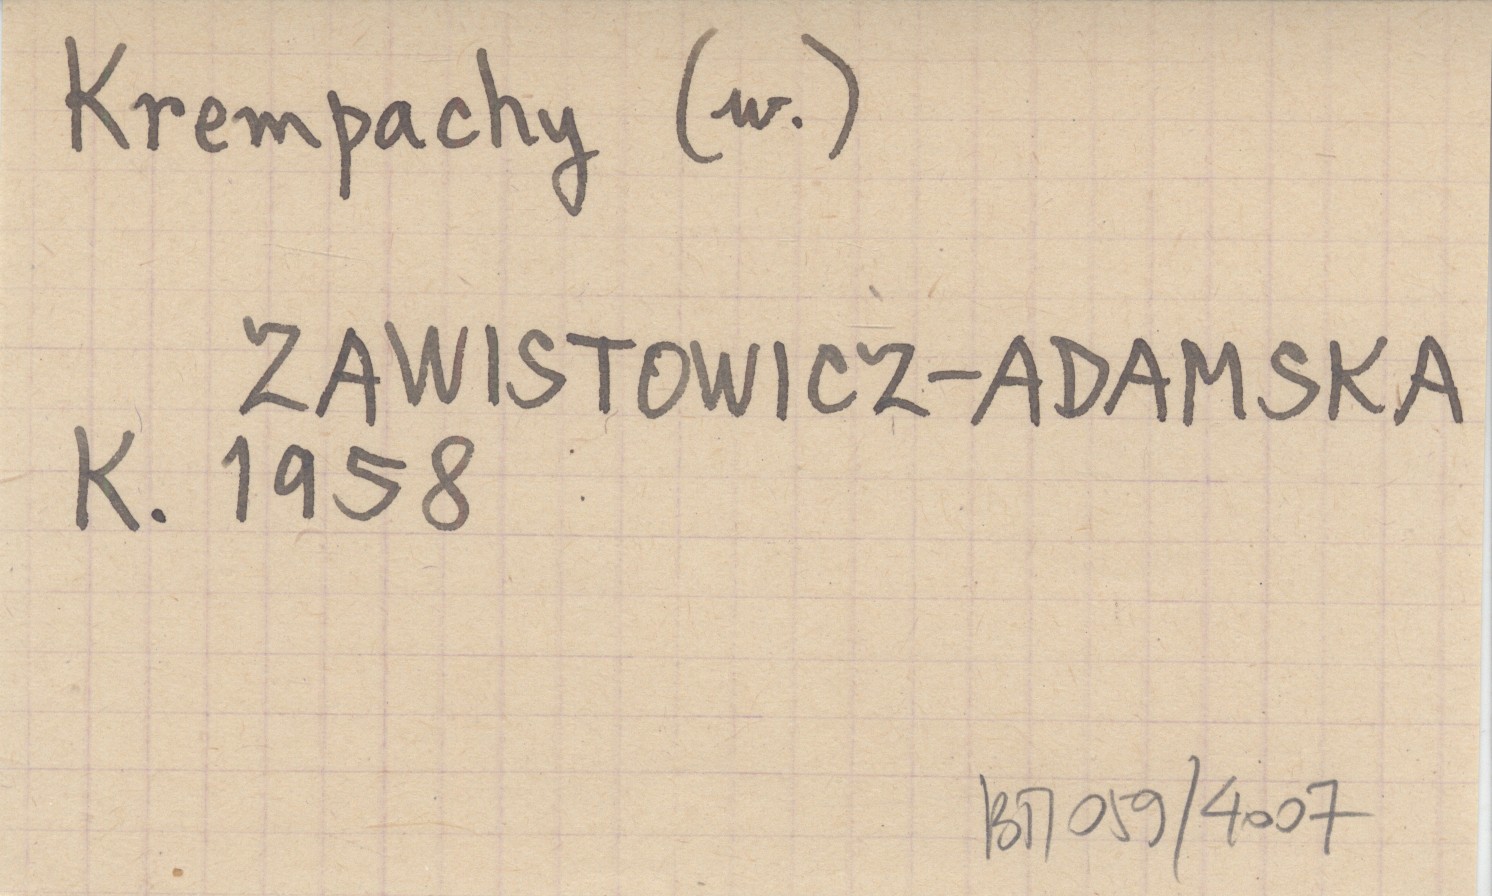 Krempachy (w.)
ZAWISTOWICZ-ADAMSKA
K. 1958
ВП 059/4007